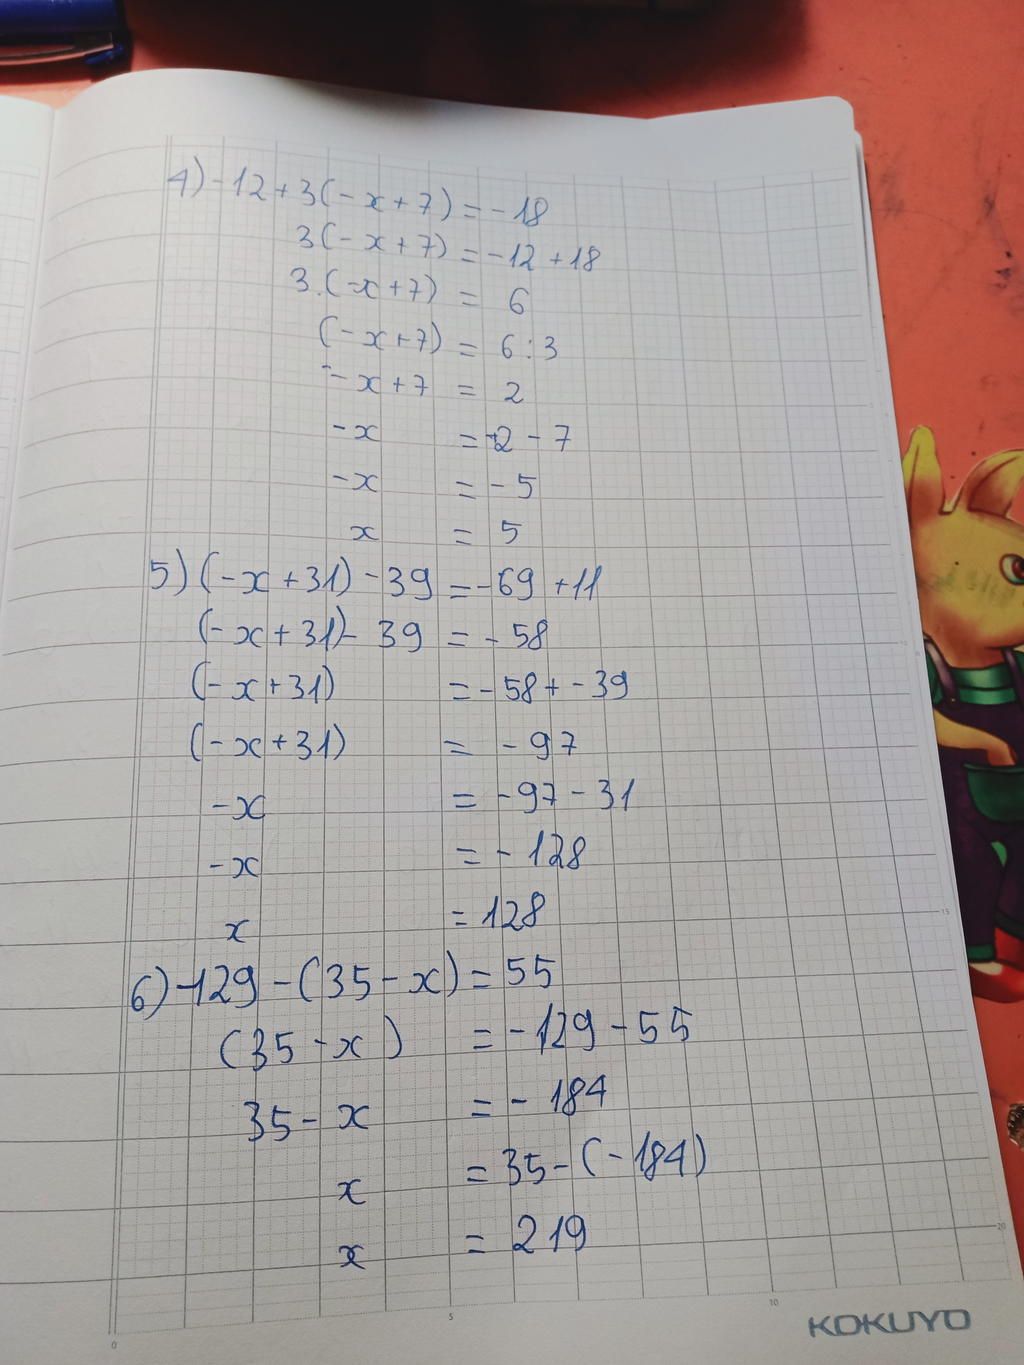 4) -12 + 3(-x + 7) = -18
3(-x + 7) = -12 + 18
3.(-x + 7) = 6
(-x + 7) = 6 : 3
-x + 7 = 2
-x = 2 - 7
-x = -5
x = 5
5) (-x + 31) - 39 = -69 + 11
(-x + 31) - 39 = -58
(-x + 31) = -58 + -39
(-x + 31) = -97
-x = -97 - 31
-x = -128
x = 128
6) -129 - (35 - x) = 55
(35 - x) = -129 - 55
35 - x = -184
x = 35 - (-184)
x = 219
0 5 10 15 20
KOKUYO